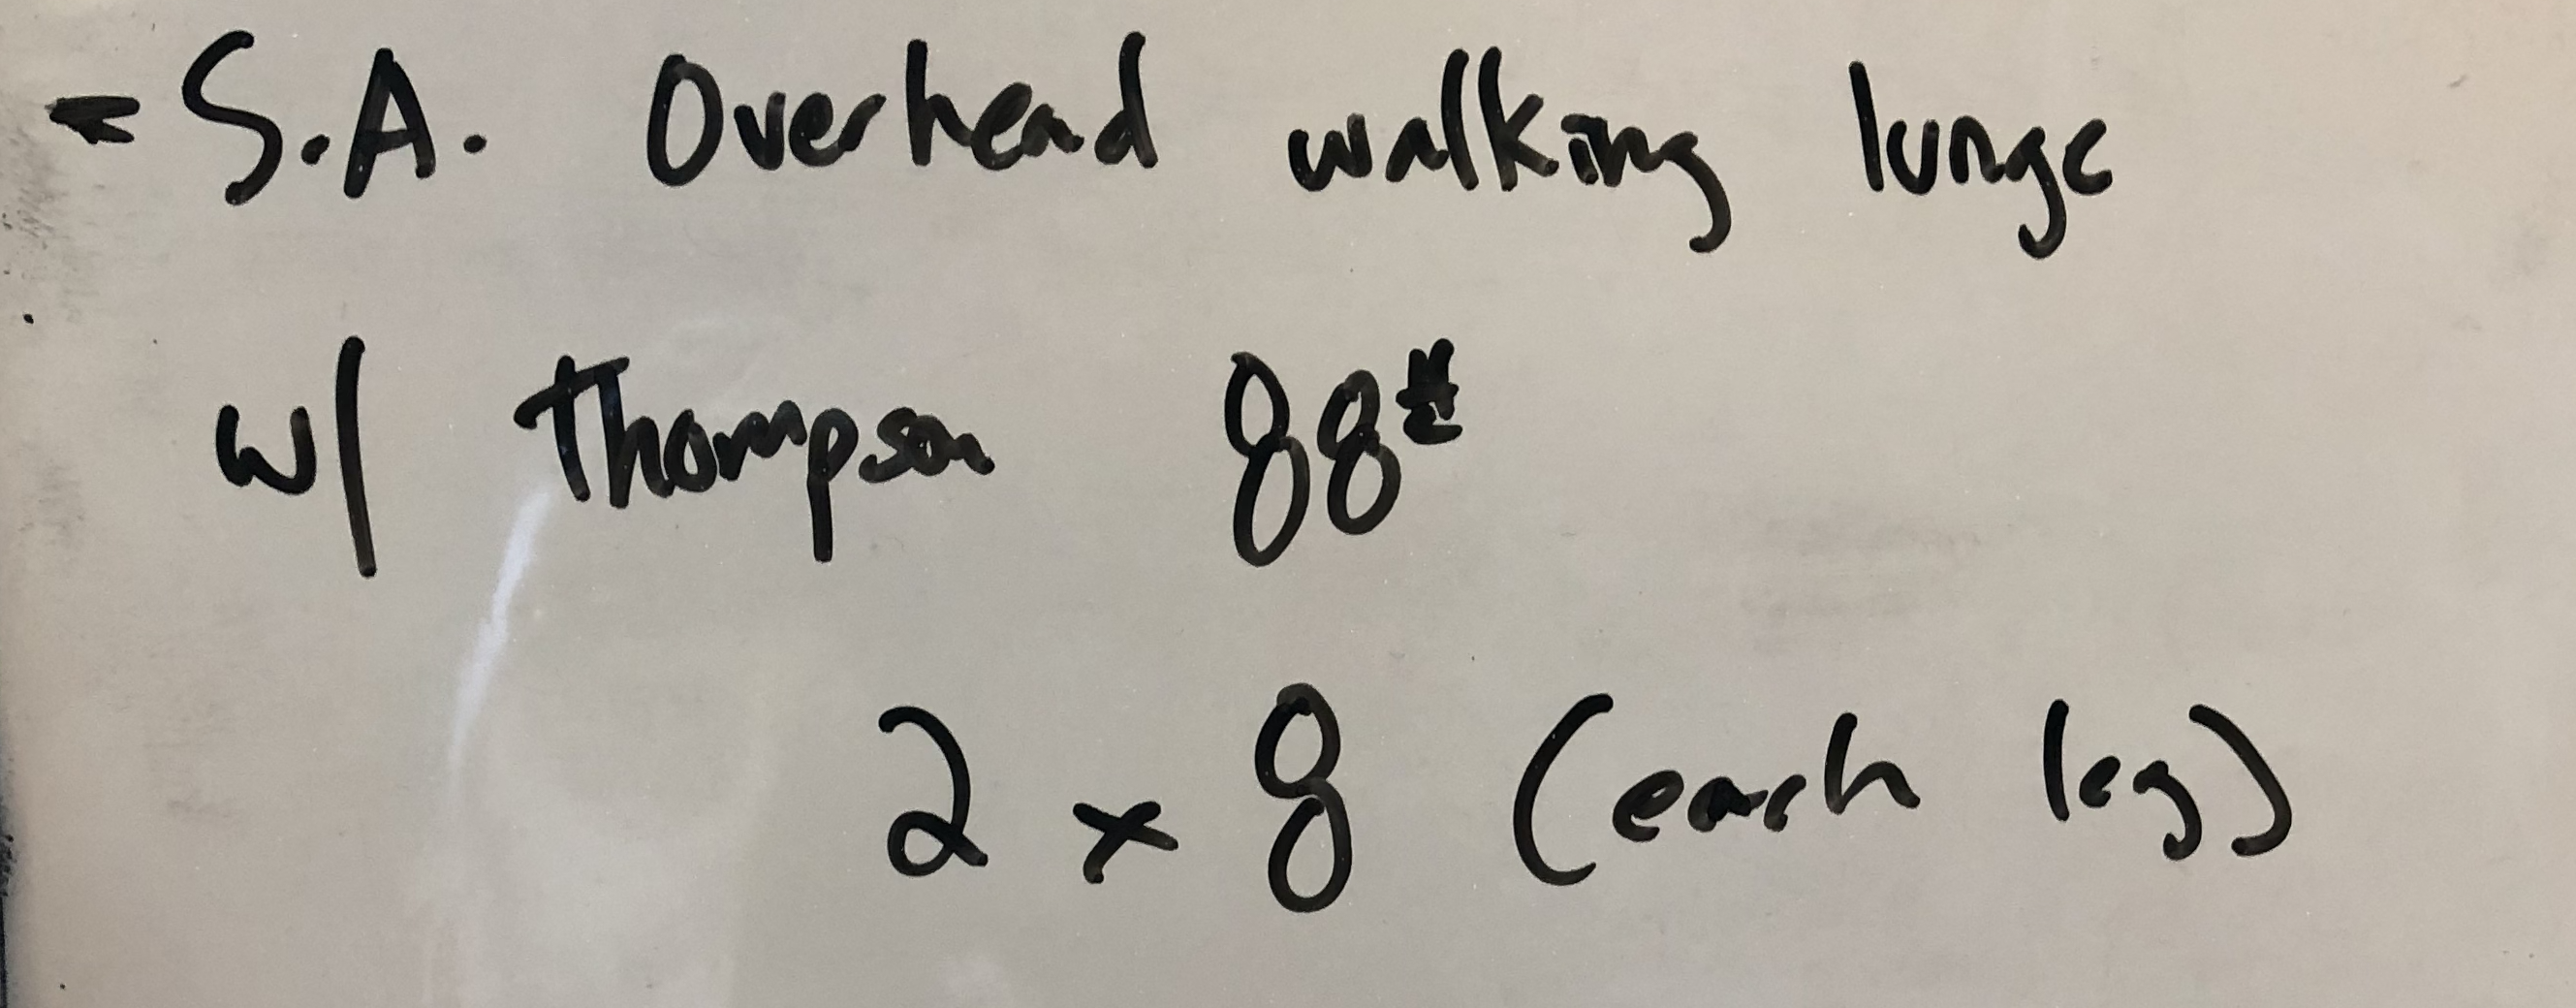 - S.A. Overhead walking lunge
w/ Thompson 88#
2 x 8 (each leg)